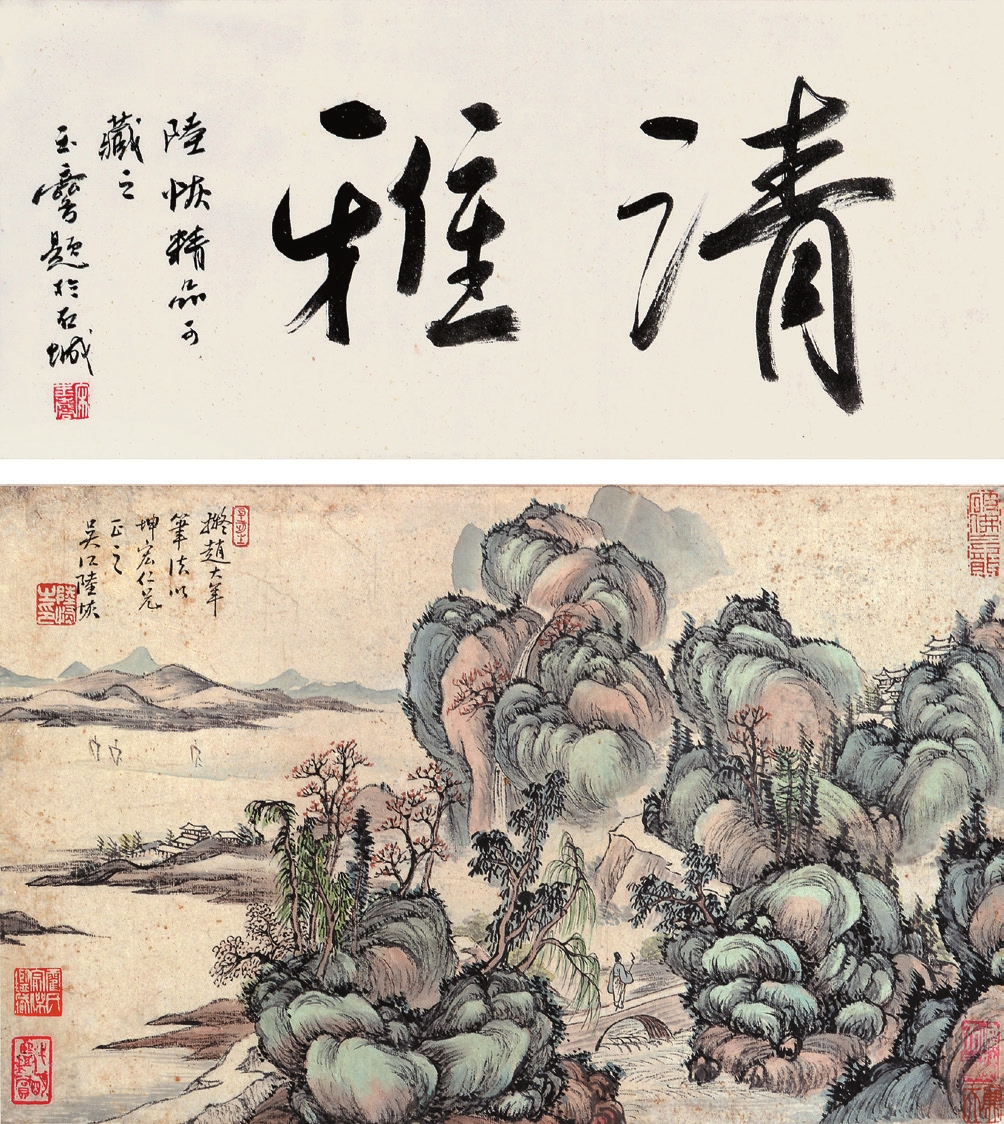 清雅
陸恢精品可
藏之
玉麐題於石城
擬趙大年
筆法以
坤宏仁兄
正之
吳江陸恢